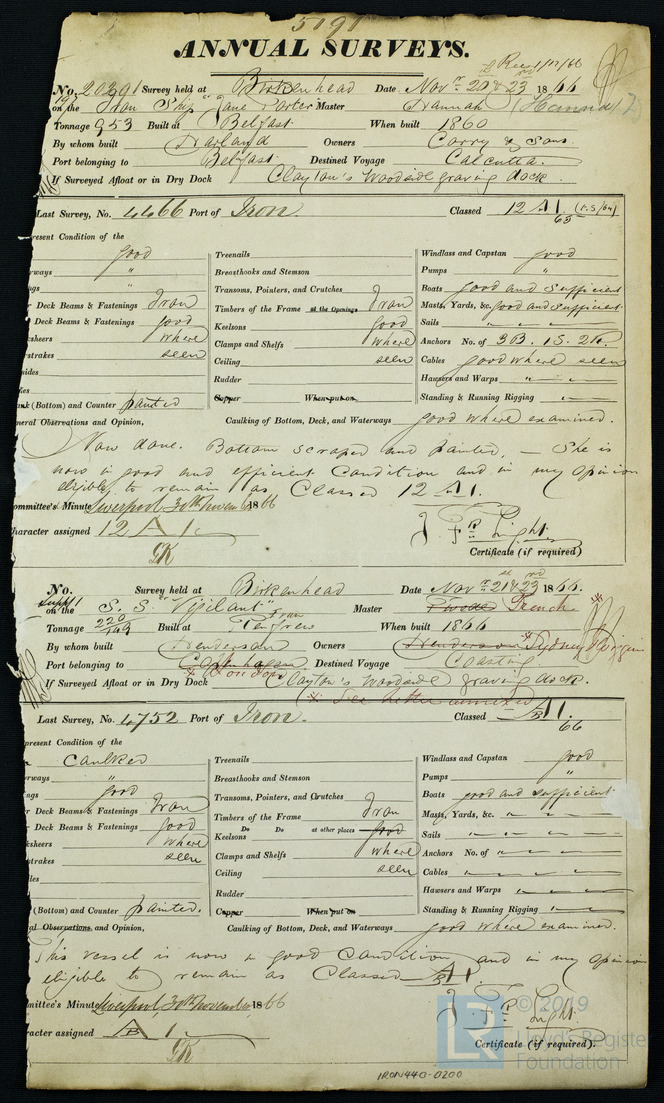 5191
ANNUAL SURVEYS.
Recd 1/12/66
No. 20391 Survey held at Birkenhead Date Novr 20 & 23rd 1866
on the Iron Ship "Jane Porter Master Hannah (Hannah?)
Tonnage 953 Built at Belfast When built 1860
By whom built Harland Owners Corry & Sons.
Port belonging to Belfast Destined Voyage Calcutta.
If Surveyed Afloat or in Dry Dock Clayton's Woodside graving dock.
Last Survey, No. 4466 Port of Iron. Classed 12 A1. (r.s/64)
65
resent Condition of the
good
rways "
ngs "
r Deck Beams & Fastenings Iron
r Deck Beams & Fastenings good
ksheers where
strakes seen
nides
kes
ank (Bottom) and Counter painted
Treenails
Breasthooks and Stemson
Transoms, Pointers, and Crutches
Timbers of the Frame at the Openings Iron
Keelsons good
Clamps and Shelfs where
Ceiling seen
Rudder
Copper When put on
Windlass and Capstan good
Pumps "
Boats good and sufficient
Masts, Yards, &c. good and sufficient
Sails " " "
Anchors No. of 3B. 1S. 2K.
Cables good where seen
Hawsers and Warps " " "
Standing & Running Rigging " " "
neral Observations and Opinion, Caulking of Bottom, Deck, and Waterways good where examined.
Now done. Bottom scraped and painted, — She is
now in good and efficient Condition and in my opinion
eligible to remain as Classed 12 A1.
ommittee's Minute Liverpool 30th November 1866
haracter assigned 12 A 1.
J. Fr. Light.
GK
Certificate (if required)
No. Survey held at Birkenhead Date Novr 21 & 23rd 1866.
Suppt
on the S. S "Vigilant" Master French.
Iron
Tonnage 220/149 Built at Renfrew When built 1866
By whom built Henderson Owners Henderson * Sydney Wiggin
Port belonging to Copenhagen Destined Voyage Coasting
* London
If Surveyed Afloat or in Dry Dock Clayton's Woodside graving dock.
* See letter annexed
Last Survey, No. 4752 Port of Iron. Classed A1.
B
66
resent Condition of the
Caulked
rways "
ngs good
r Deck Beams & Fastenings Iron
r Deck Beams & Fastenings good
ksheers where
strakes seen
des
(Bottom) and Counter painted.
Treenails
Breasthooks and Stemson
Transoms, Pointers, and Crutches
Timbers of the Frame Iron
Do Do at other places good
Keelsons
Clamps and Shelfs where
Ceiling seen
Rudder
Copper When put on
Windlass and Capstan good
Pumps "
Boats good and sufficient
Masts, Yards, &c. " " "
Sails " " "
Anchors No. of " " "
Cables " " "
Hawsers and Warps " " "
Standing & Running Rigging " " "
al Observations and Opinion, Caulking of Bottom, Deck, and Waterways good where examined.
This vessel is now in good Condition and in my opinion
eligible to remain as Classed A1
B
mmittee's Minute Liverpool, 30th November 1866
racter assigned A 1.
B
J. Fr. Light.
GK
Certificate (if required).
LR © 2019
Lloyd's Register
Foundation
IRON440-0200